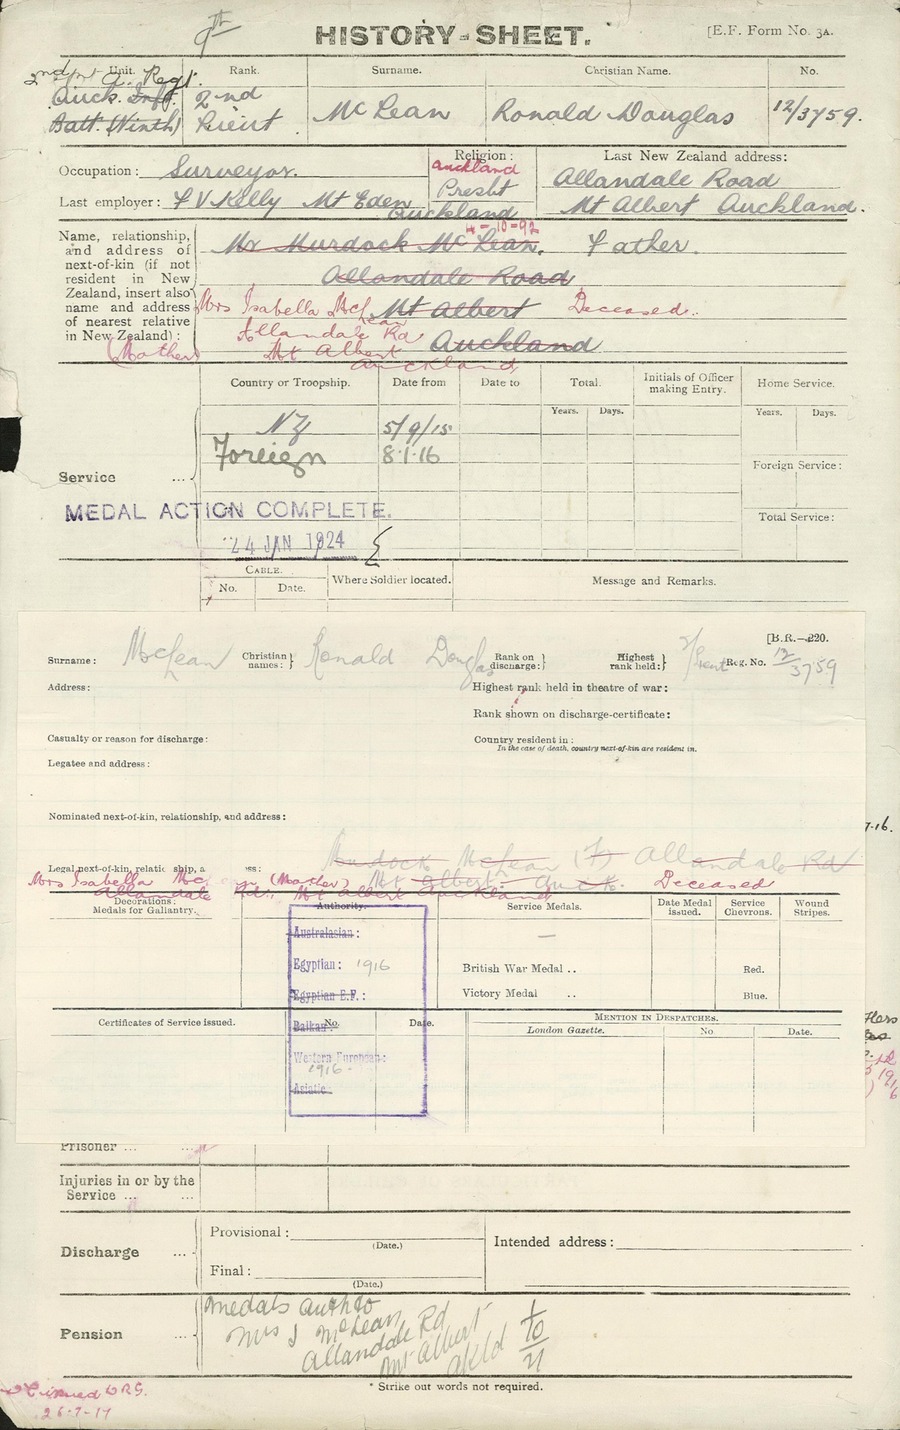 9th
HISTORY-SHEET.
[E.F. Form No. 3A.
Unit. Rank. Surname. Christian Name. No.
2nd A. Regt.
Auck. Inft. 2nd McLean Ronald Douglas 12/3759.
Batt. (Ninth) Lieut.
Occupation: Surveyor.
Last employer: F V Kelly Mt Eden
Auckland
Religion:
Auckland
Presbt
4-10-92
Last New Zealand address:
Allandale Road
Mt Albert Auckland.
Name, relationship, and address of next-of-kin (if not resident in New Zealand, insert also name and address of nearest relative in New Zealand):
Mr Murdock McLean. Father.
Allandale Road
Mt Albert Deceased.
Auckland
Mrs Isabella McLean
Allandale Rd
(Mother) Mt Albert
Auckland
Service ...
Country or Troopship. Date from Date to Total. Initials of Officer making Entry. Home Service.
Years. Days. Years. Days.
NZ 5/9/15
Foreign 8.1.16
Foreign Service:
Total Service:
MEDAL ACTION COMPLETE.
24 JAN 1924
Cable. Where Soldier located. Message and Remarks.
No. Date.
[B.R.—220.
Surname: McLean Christian names: Ronald Douglas Rank on discharge: Highest rank held: 2/Lieut Reg. No. 12/3759
Address: Highest rank held in theatre of war:
Rank shown on discharge-certificate:
Casualty or reason for discharge: Country resident in:
In the case of death, country next-of-kin are resident in.
Legatee and address:
Nominated next-of-kin, relationship, and address:
7.16.
Legal next-of-kin, relationship, a ss: Murdock McLean (F) Allandale Rd
Mt Albert Auck. Deceased
Mrs Isabella Mc (Mother)
Allandale Rd. Mt Albert Auckland
Decorations: Medals for Gallantry. Authority. Service Medals. Date Medal issued. Service Chevrons. Wound Stripes.
Australasian:
Egyptian: 1916
Egyptian E.F.:
Balkan:
Western European:
1916-
Asiatic:
British War Medal .. Red.
Victory Medal .. Blue.
Certificates of Service issued. No. Date. Mention in Despatches.
London Gazette. No Date.
Prisoner ... ...
Injuries in or by the Service ... ...
Discharge ... Provisional: (Date.) Intended address:
Final: (Date.)
Pension ...
Medals auth to
Mrs I McLean
Allandale Rd
Mt Albert
Akld
1/10/21
* Strike out words not required.
26-7-17